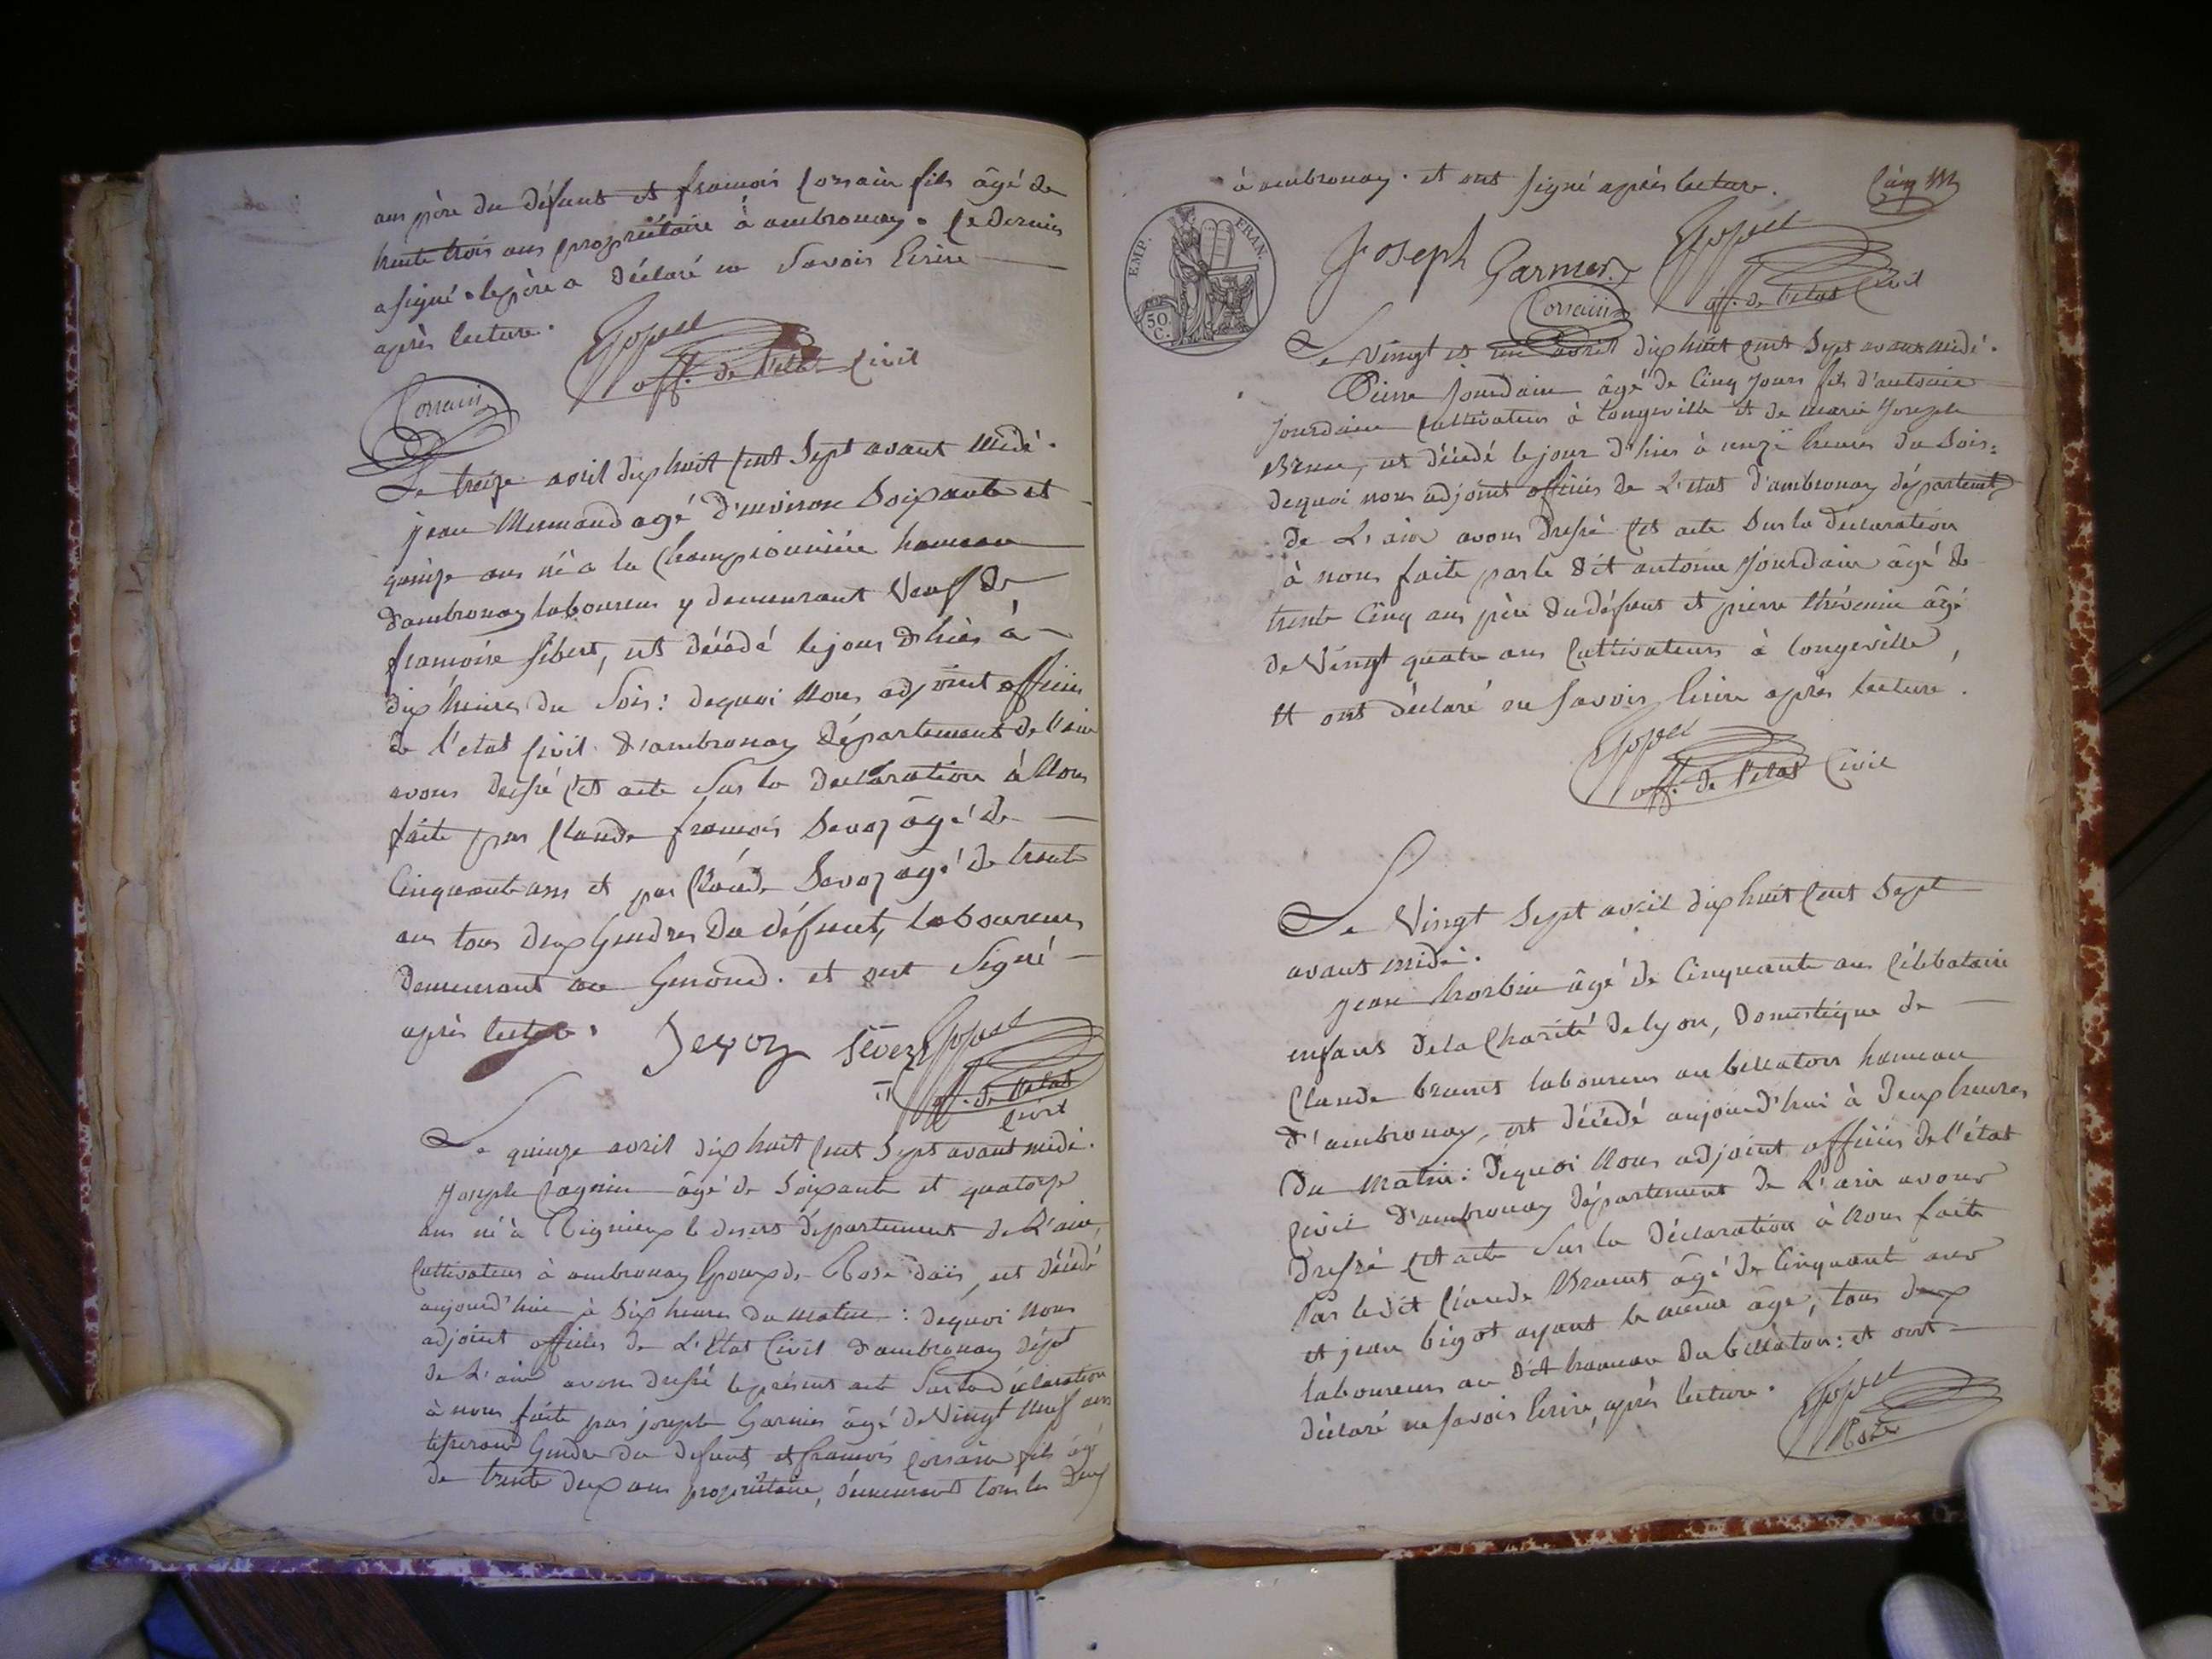 ans père du défunt et françois Corrain fils âgé de
trente trois ans propriétaire à ambronay. Ce dernier
a signé. le père a déclaré ne Savoir Ecrire
après lecture.
off. de l'état Civil
Corrain
Le treize avril dix huit Cent Sept avant Midi.
jean Mermand agé d'environ Soixante et
quinze ans né à la Championnière hameau
d'ambronay laboureur y demeurant Veuf de
françoise sibert, est décédé le jour d'hier à
dix heures du Soir : dequoi Nous adjoint officier
de l'etat Civil d'ambronay Département de l'ain
avons dressé Cet acte Sur la declaration à Nous
faite par Claude françois Savoz âgé de
Cinquante ans et par Claude Savoz agé de trente
ans tous deux Gendres du défunt, laboureurs
demeurant au Genoud. et ont Signé
après lecture.
off. de l'état
Civil
Le quinze avril dix huit Cent Sept avant midi.
Joseph Cagnin âgé de Soixante et quatorze
ans né à Rignieux le desert département de L'ain,
Cultivateur à ambronay Epoux de Rose daïs, est décédé
aujourd'hui à Six heures du matin : dequoi Nous
adjoint officier de L'Etat Civil d'ambronay dépt
de L'ain avons dressé le présent acte Sur la déclaration
à nous faite par joseph Garnier âgé de Vingt Neuf ans
tisserand Gendre du defunt et françois Corrain fils âgé
de trente deux ans propriétaire, demeurant tous les Deux
à ambronay. et ont signé après lecture.
EMP. FRAN.
50 C.
Joseph Garnier
Corrain
off. de l'état Civil
Le vingt et un avril dix huit Cent Sept avant midi.
Pierre Jourdain âgé de Cinq jours fils d'antoine
Jourdain Cultivateur à Longeville et de marie Joseph
Brun, est décédé le jour d'hier à onze heures du Soir :
dequoi nous adjoint officier de L'etat d'ambronay départemt
de L'ain avons dressé Cet acte Sur la déclaration
à nous faite par le dit antoine Jourdain âgé de
trente Cinq ans père du défunt et pierre thévenin âgé
de Vingt quatre ans Cultivateurs à longeville,
Et ont déclaré ne Savoir Ecrire après lecture.
off. de l'état Civil
Le Vingt Sept avril dix huit Cent Sept
avant midi.
jean âgé de Cinquante ans Célibataire
enfant de la Charité de lyon, domestique de
Claude brunet laboureur au bellaton hameau
d'ambronay, est décédé aujourd'hui à Deux heures
du Matin : dequoi Nous adjoint officier de l'état
Civil d'ambronay département de L'ain avons
Dressé Cet acte Sur la Déclaration à Nous faite
Par ledit Claude Brunet âgé de Cinquante ans
et jean bigot ayant le même âge, tous deux
laboureurs au dit hameau du bellaton : et ont
déclaré ne savoir Ecrire, après lecture.